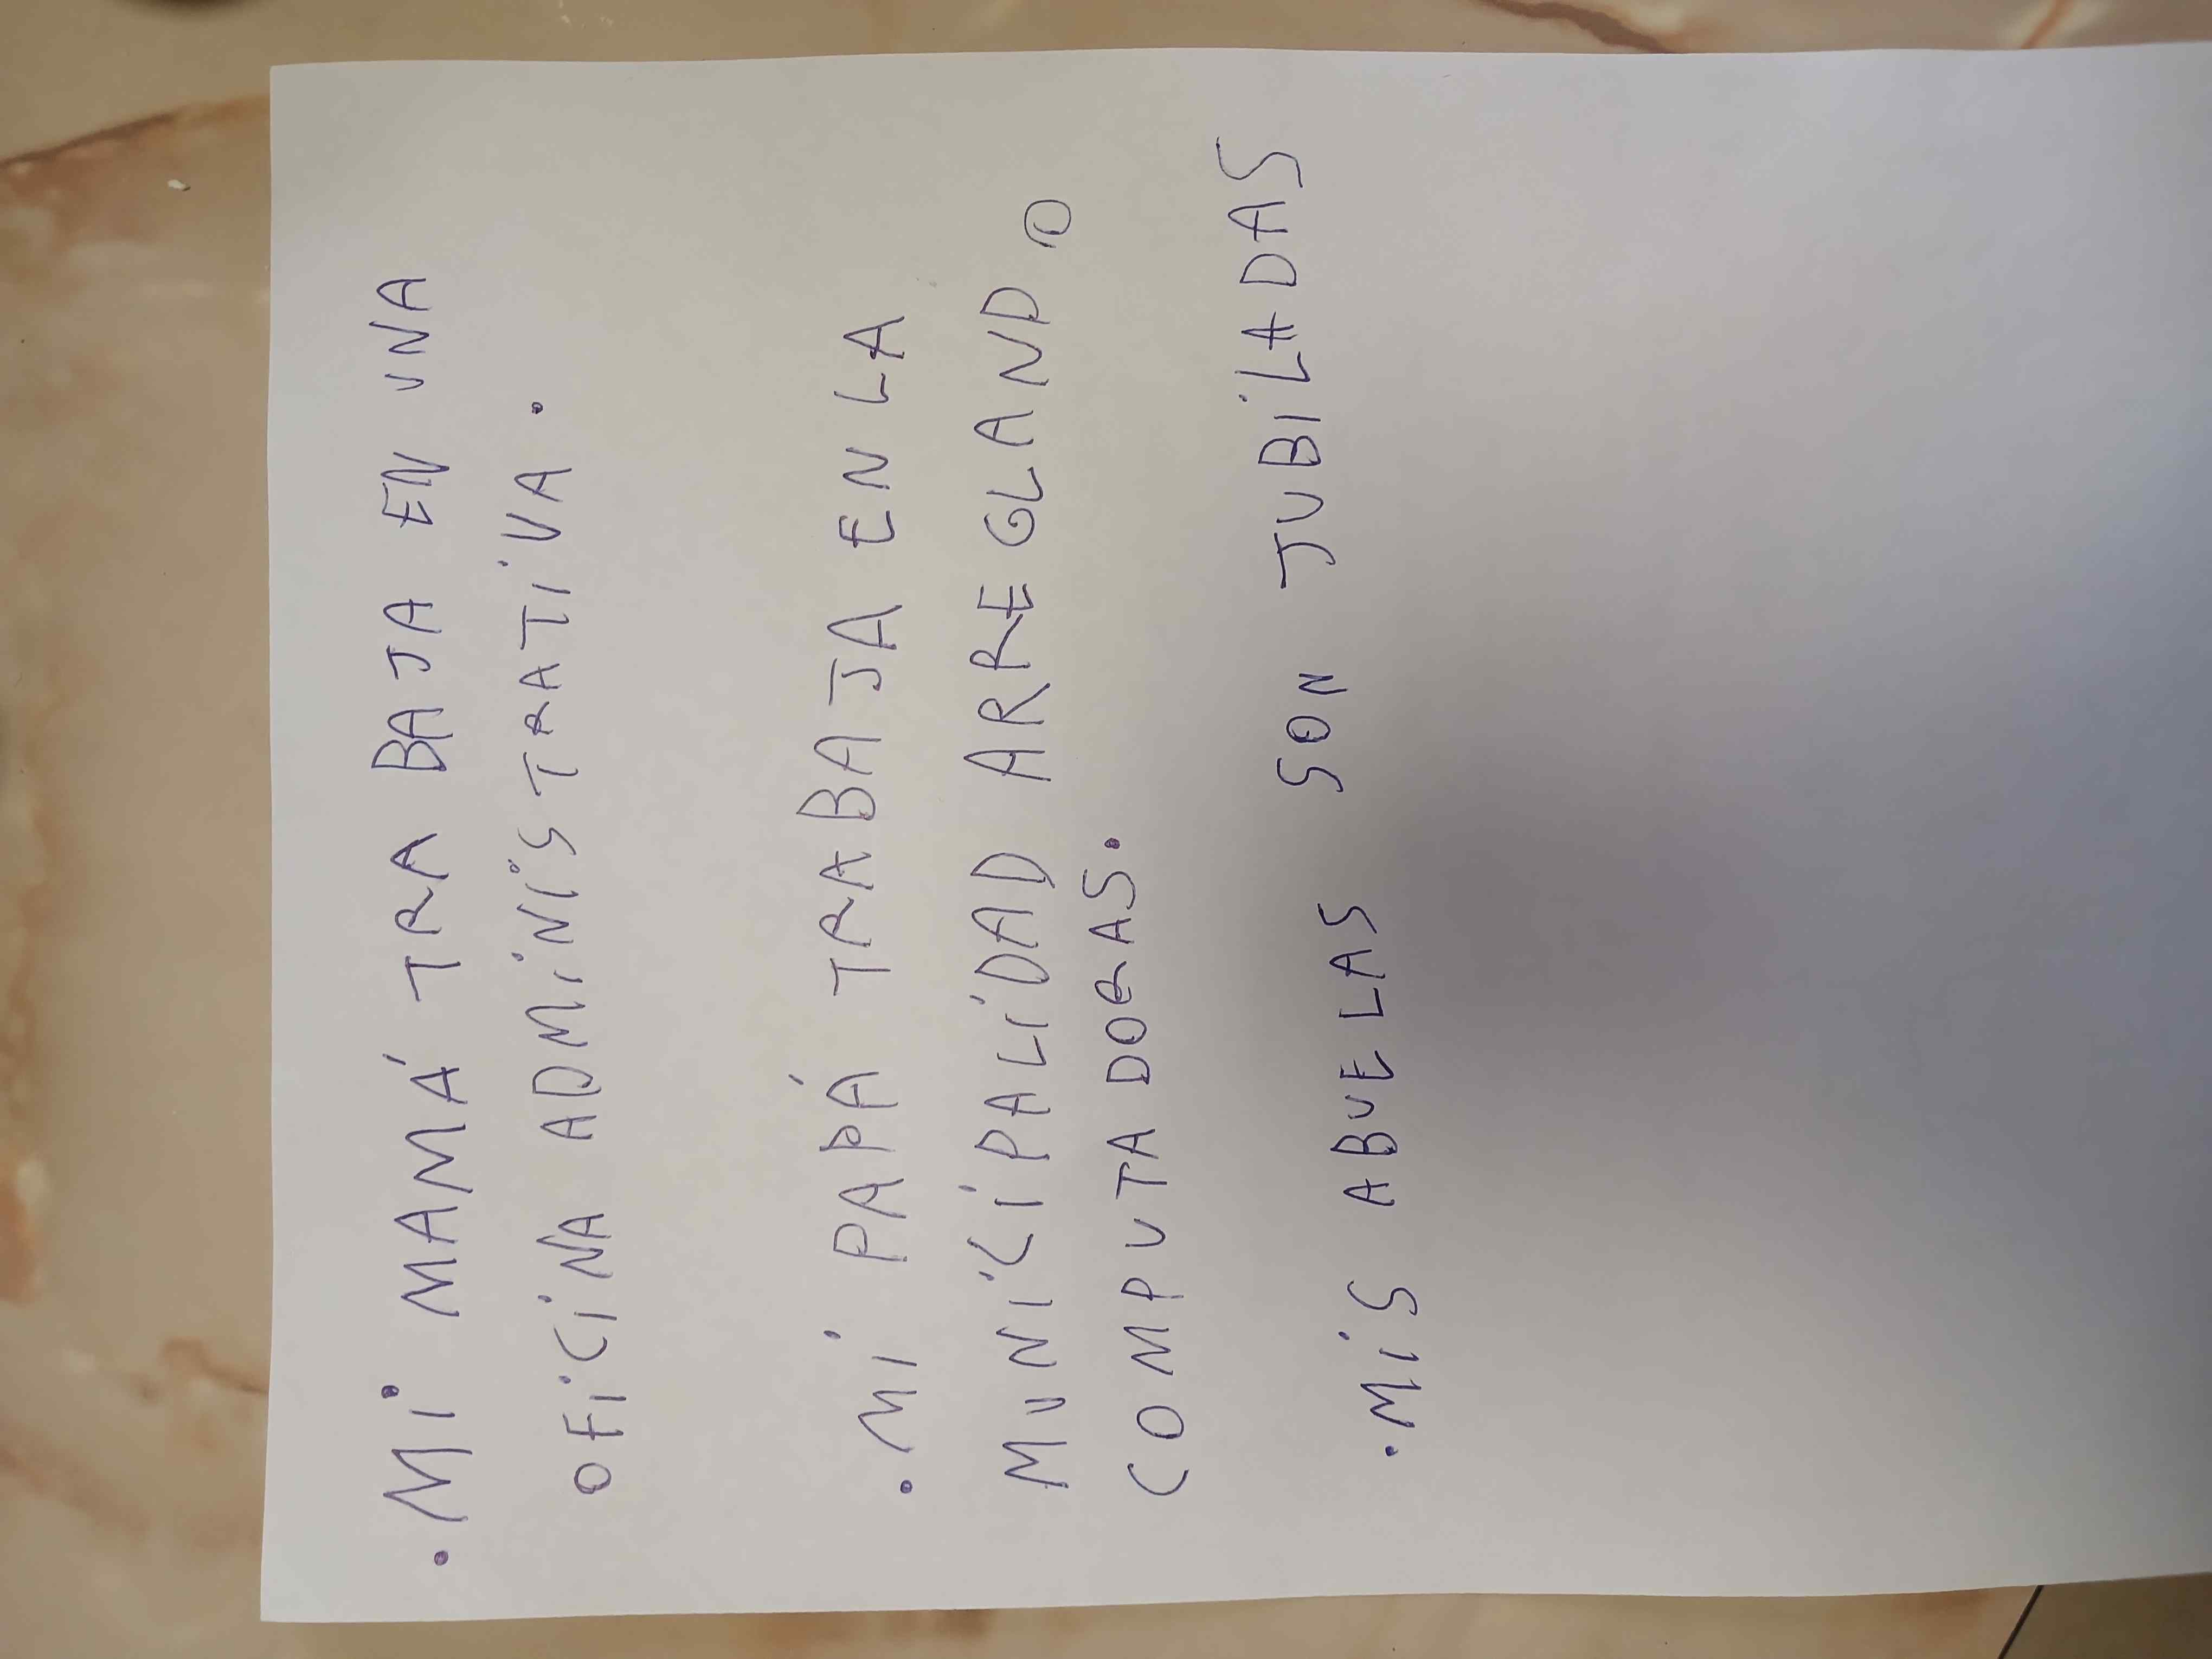 .Mi MAMÁ TRABAJA EN UNA
OFiCiNA ADMiNiSTRATiVA.
.Mi PAPÁ TRABAJA EN LA
MUNiCiPALiDAD ARREGLANDO
COMPUTADORAS.
.MiS ABUELAS SON JUBiLADAS